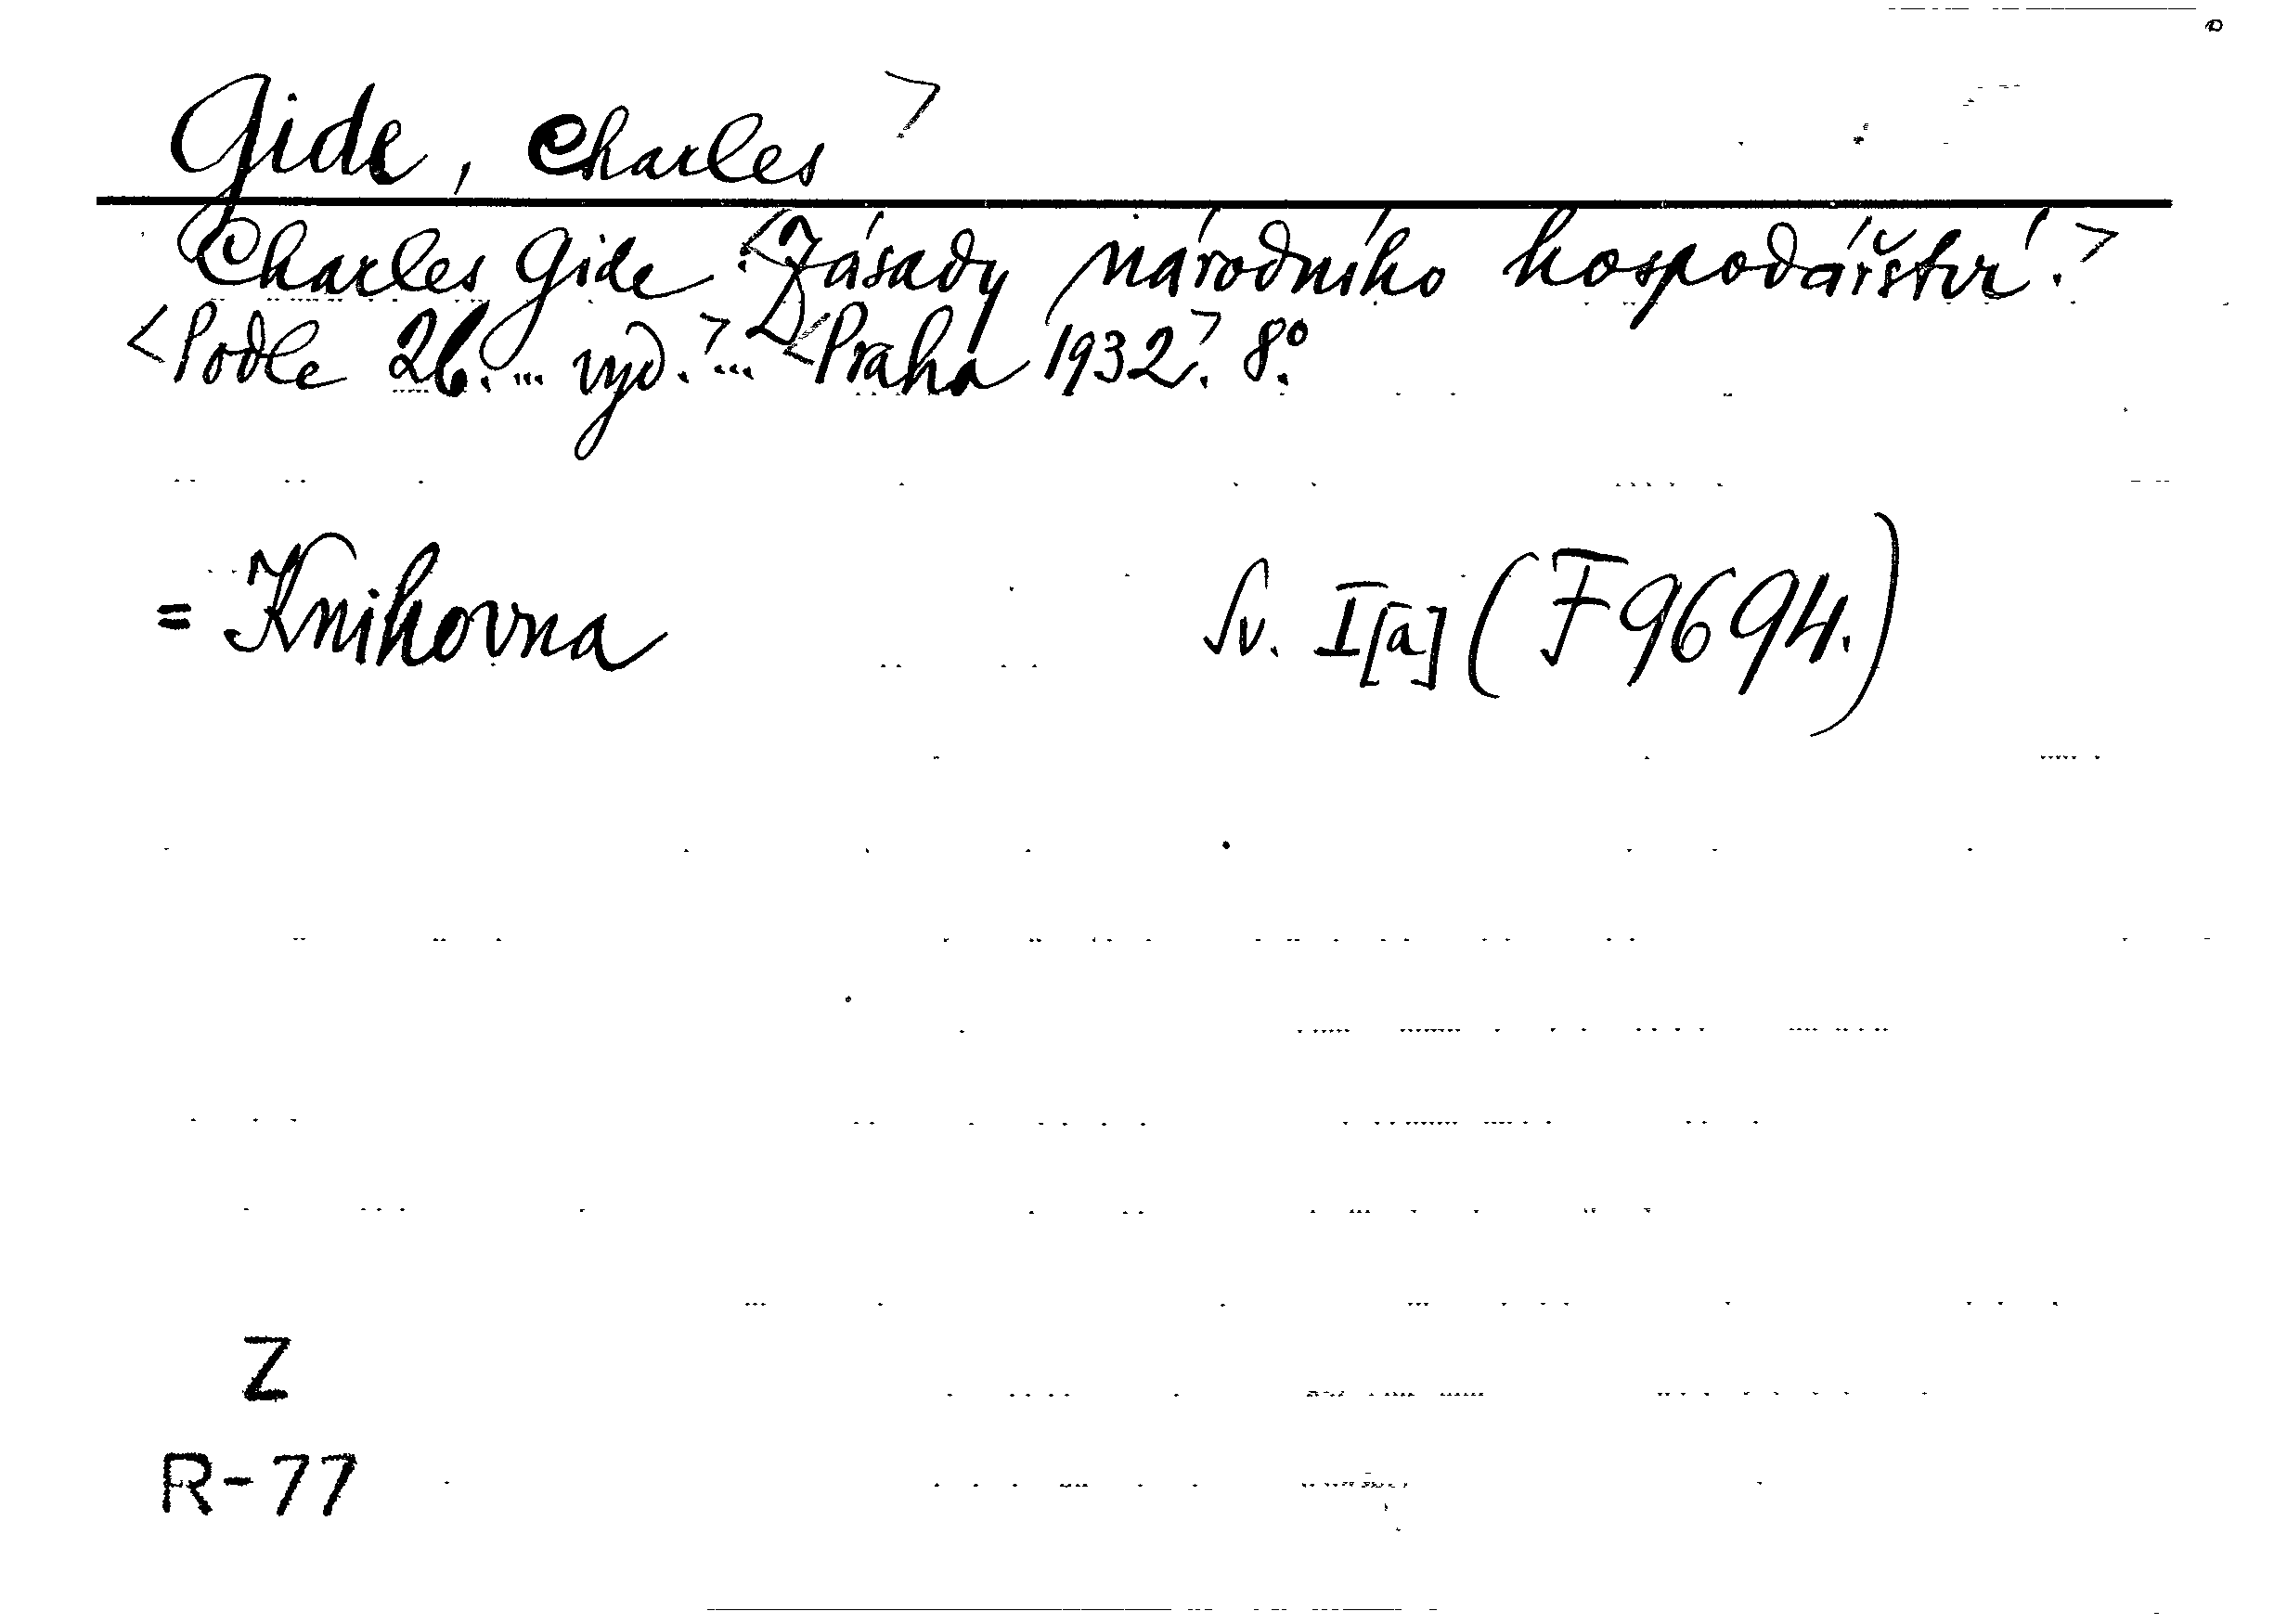 Gide, Charles >
Charles Gide: <Zásady národního hospodářství.>
<Podle 26. ... vyd.> ... <Praha 1932>. 8°.
= Knihovna Sv. I[a] (F 9694.)
Z
R-77